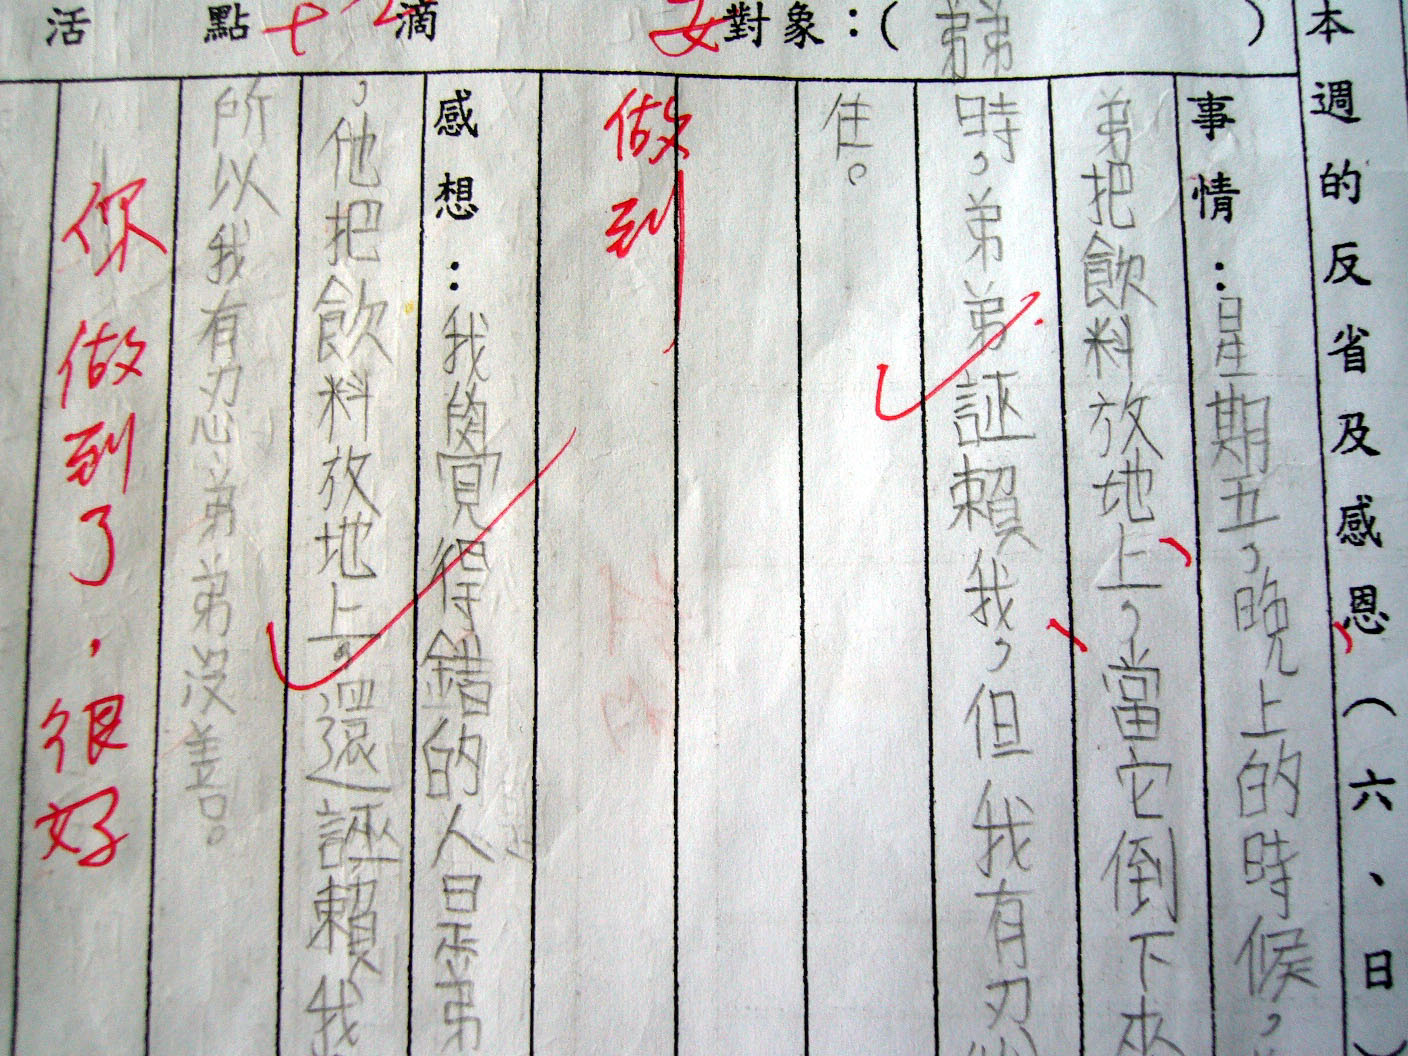 本週的反省及感恩(六、日)
對象：(弟弟)
事情：星期五，晚上的時候，
弟把飲料放地上，當它倒下來
時，弟弟誣賴我，但我有忍
住。
做到
感想：我覺得錯的人是弟
，他把飲料放地上。還誣賴我
所以我有忍弟弟沒差。
你做到了，很好
活 點 滴